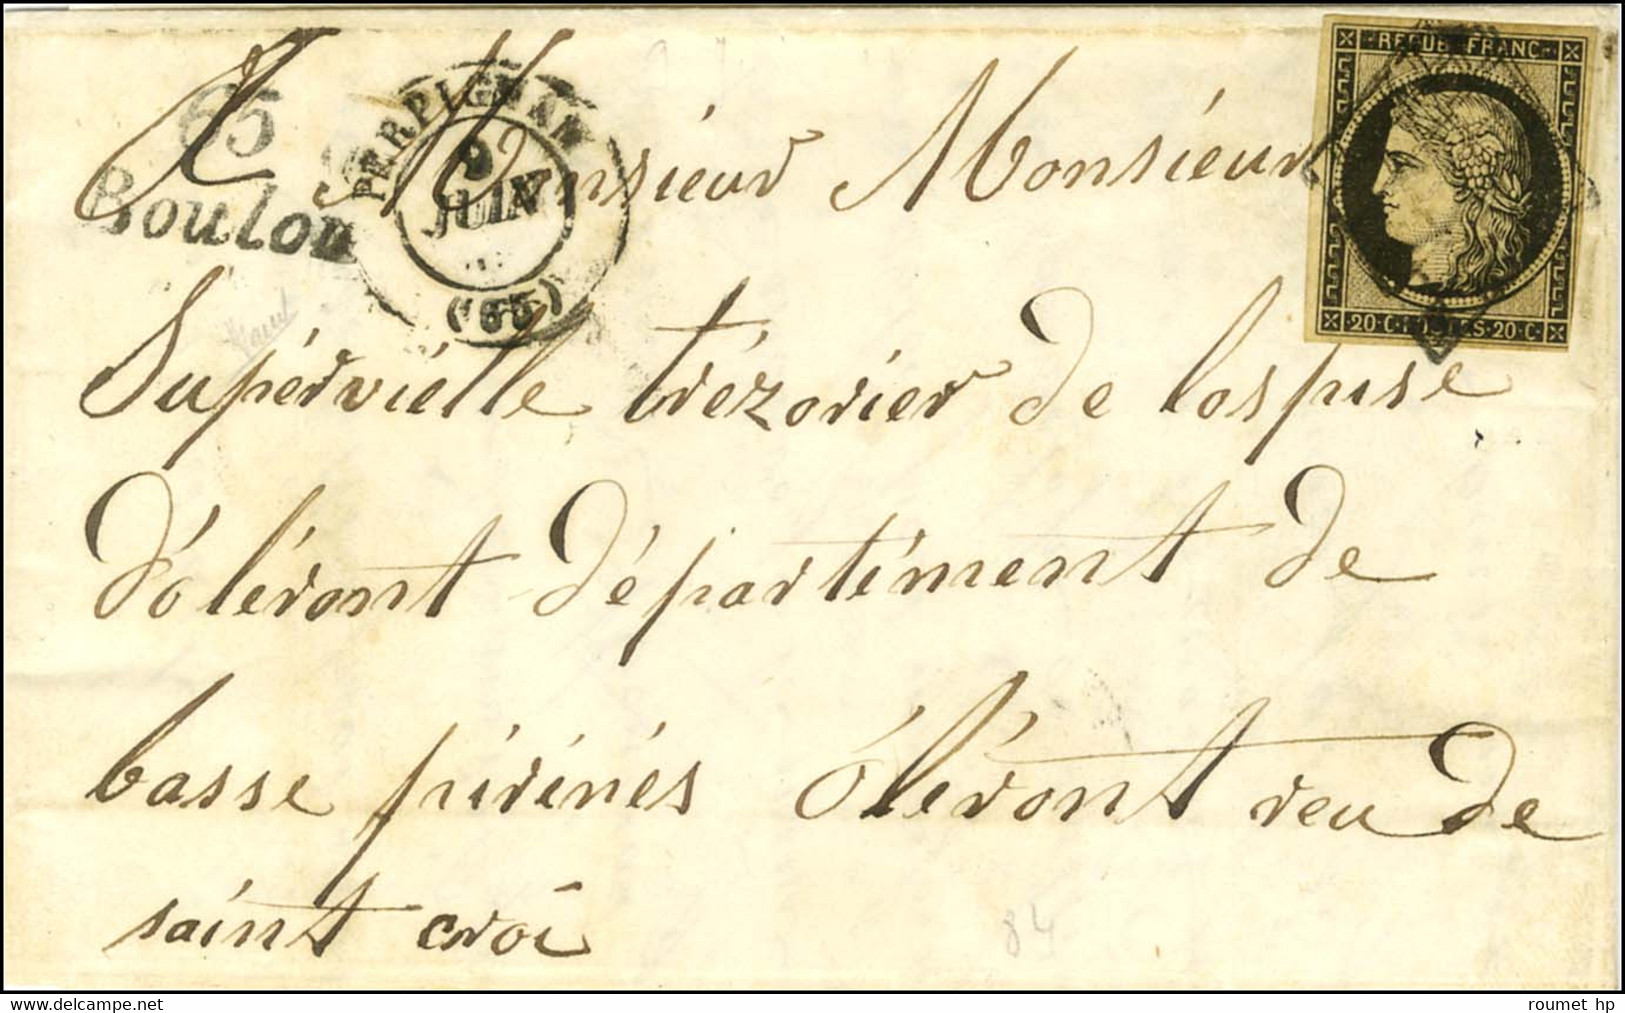 65
Boulou
PERPIGNAN
9
JUIN
(65)
REPUB FRANC
20·C·POSTES·20·C
A Monsieur Monsieur
Supérvièlle trézorier de lospise
d'oléront département de
basse pirénés óléront reu de
saint croi
84
www.delcampe.net
roumet hp